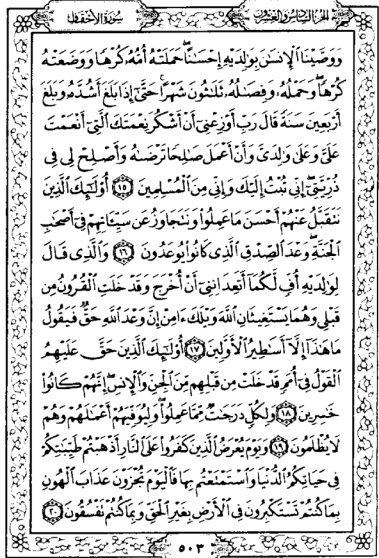 الجزء السادس والعشرون
سورة الأحقاف
وَوَصَّيْنَا الْإِنسَٰنَ بِوَٰلِدَيْهِ إِحْسَٰنًا ۖ حَمَلَتْهُ أُمُّهُ كُرْهًا وَوَضَعَتْهُ
كُرْهًا ۖ وَحَمْلُهُ وَفِصَٰلُهُ ثَلَٰثُونَ شَهْرًا ۚ حَتَّىٰ إِذَا بَلَغَ أَشُدَّهُ وَبَلَغَ
أَرْبَعِينَ سَنَةً قَالَ رَبِّ أَوْزِعْنِي أَنْ أَشْكُرَ نِعْمَتَكَ الَّتِي أَنْعَمْتَ
عَلَيَّ وَعَلَىٰ وَٰلِدَيَّ وَأَنْ أَعْمَلَ صَٰلِحًا تَرْضَىٰهُ وَأَصْلِحْ لِي فِي
ذُرِّيَّتِي ۖ إِنِّي تُبْتُ إِلَيْكَ وَإِنِّي مِنَ الْمُسْلِمِينَ ١٥ أُولَٰئِكَ الَّذِينَ
نَتَقَبَّلُ عَنْهُمْ أَحْسَنَ مَا عَمِلُوا وَنَتَجَاوَزُ عَن سَيِّئَاتِهِمْ فِي أَصْحَٰبِ
الْجَنَّةِ ۖ وَعْدَ الصِّدْقِ الَّذِي كَانُوا يُوعَدُونَ ١٦ وَالَّذِي قَالَ
لِوَٰلِدَيْهِ أُفٍّ لَّكُمَا أَتَعِدَانِنِي أَنْ أُخْرَجَ وَقَدْ خَلَتِ الْقُرُونُ مِن
قَبْلِي وَهُمَا يَسْتَغِيثَانِ اللَّهَ وَيْلَكَ ءَامِنْ إِنَّ وَعْدَ اللَّهِ حَقٌّ فَيَقُولُ
مَا هَٰذَا إِلَّا أَسَٰطِيرُ الْأَوَّلِينَ ١٧ أُولَٰئِكَ الَّذِينَ حَقَّ عَلَيْهِمُ
الْقَوْلُ فِي أُمَمٍ قَدْ خَلَتْ مِن قَبْلِهِم مِّنَ الْجِنِّ وَالْإِنسِ ۖ إِنَّهُمْ كَانُوا
خَٰسِرِينَ ١٨ وَلِكُلٍّ دَرَجَٰتٌ مِّمَّا عَمِلُوا ۖ وَلِيُوَفِّيَهُمْ أَعْمَٰلَهُمْ وَهُمْ
لَا يُظْلَمُونَ ١٩ وَيَوْمَ يُعْرَضُ الَّذِينَ كَفَرُوا عَلَى النَّارِ أَذْهَبْتُمْ طَيِّبَٰتِكُمْ
فِي حَيَاتِكُمُ الدُّنْيَا وَاسْتَمْتَعْتُم بِهَا فَالْيَوْمَ تُجْزَوْنَ عَذَابَ الْهُونِ
بِمَا كُنتُمْ تَسْتَكْبِرُونَ فِي الْأَرْضِ بِغَيْرِ الْحَقِّ وَبِمَا كُنتُمْ تَفْسُقُونَ ٢٠
٥٠٣